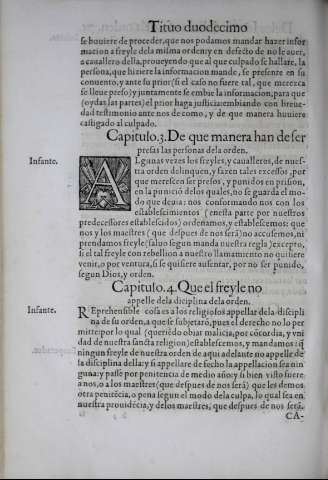 Tituo duodecimo
se houiere de proceder, que nos podamos mandar hazer infor
macion a freyle dela misma orden: y en defecto de no le auer,
a cauallero della, proueyendo que al que culpado se hallare, la
persona, que hiziere la informacion mande, se presente en su
conuento, y ante su prior: (si el caso no fuere tal, que merezca
se lleue preso) y juntamente se embie la informacion, para que
(oydas las partes) el prior haga justicia: embiando con breue-
dad testimonio ante nos de como, y de que manera huuiere
castigado al culpado.
Capitulo.3. De que manera han de ser
presas las personas dela orden.
Infante.
ALgunas vezes los freyles, y caualleros, de nues-
tra orden delinquen, y fazen tales excessos, por
que merescen ser presos, y punidos en prision,
en la punició delos quales, no se guarda el mo-
do que deuia: nos conformando nos con los
establescimientos (enesta parte por nuestros
predecessores establescidos) ordenamos, y establescemos: que
nos y los maestres (que despues de nos será) no accusemos, ni
prendamos freyle (saluo segun manda nuestra regla) excepto,
si el tal freyle con rebellion a nuestro llamamiento no quifiere
venir, o por ventura, si se quisiere ausentar, por no ser punido,
segun Dios, y orden.
Capitulo.4. Que el freyle no
appelle dela diciplina dela orden.
Infante.
REprehensible cosa es a los religiosos appellar dela discipli
na de su orden, a que se subjetaró, pues el derecho no lo per
mite: por lo qual (queriédo obiar malicia, por cócordia, y vni
dad de nuestra sancta religion) establescemos, y mandamos: q̃
ningun freyle de nuestra orden de aqui adelante no appelle de
la disciplina della: y si appellare de fecho la appellacion sea nin
guna: y passe por penitencia de medio año: y si bien visto fuere
a nos, o a los maestres (que despues de nos será) que les demos
otra penitécia, o pena segun el modo dela culpa, lo qual sea en
nuestra prouidécia, y delos maestres, que despues de nos será.
CA-